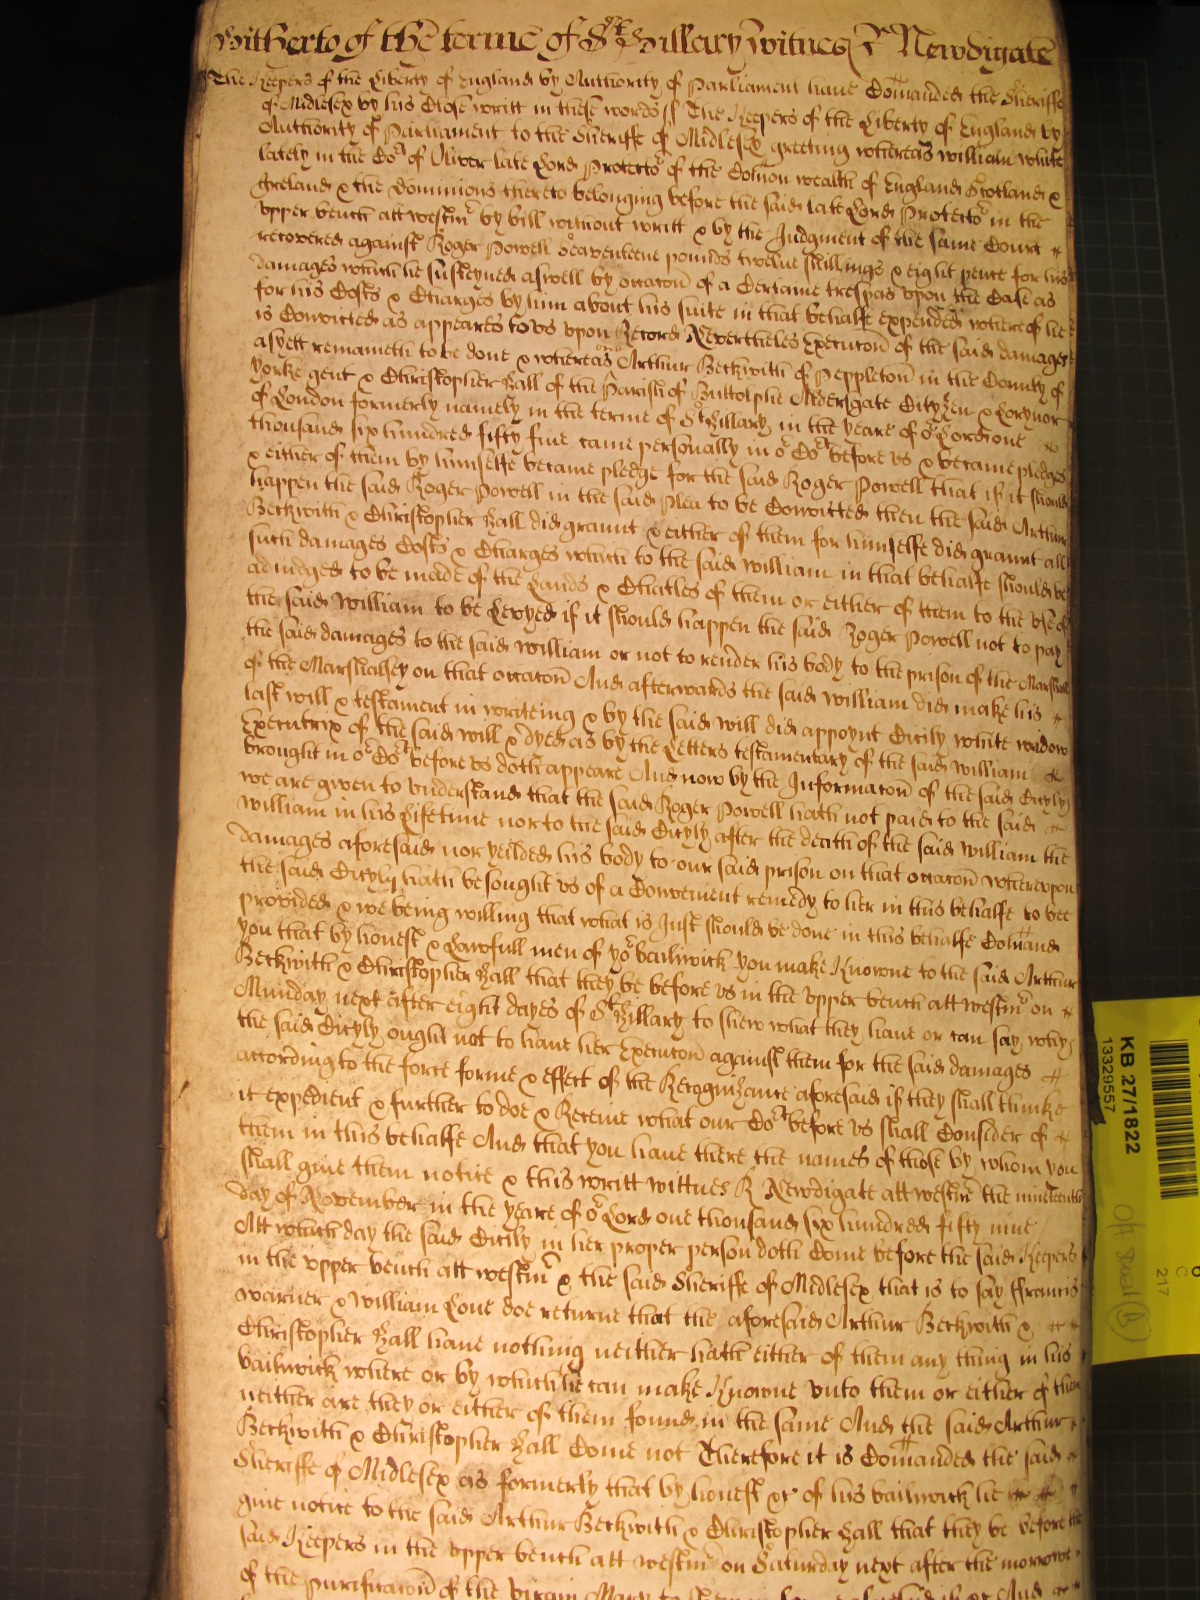 Hitherto of the terme of St Hillary witnes R Newdigate
The Keepers of the Liberty of England by Authority of Parliament have Comanded the Sheriffe
of Midlesex by his Close writt in these words // The Keepers of the Liberty of England by
Authority of Parliament to the Sheriffe of Midlesex greeting whereas William White
lately in the Cort of Oliver late Lord Protector of the Comon wealth of England Scotland &
Ireland & the Dominions thereto belonging before the said late Lord Protector in the
upper bench att westmr by bill without writt & by the Judgment of the same Court
recovered against Roger Powell Seaventeene pounds twelve shillings & eight pence for his
damages which he susteyned aswell by occacon of a Certaine trespas upon the Case as
for his Costs & Charges by him about his suite in that behalfe expended whereof he
is Convicted as appeares to us upon Record Nevertheles Execucon of the said damages
as yett remaineth to be done & whereas one Arthur Beckwith of Peppleton in the County of
Yorke gent & Christopher Hall of the Parish of Buttolphe Aldersgate Cityzen & Lorynor
of London formerly namely in the terme of St Hillary in the yeare of or Lord one
thousand six hundred fifty five came personally in or Cort before us & became pledges
& either of them by himselfe became pledge for the said Roger Powell that if it should
happen the said Roger Powell in the said Plea to be Convicted then the said Arthur
Beckwith & Christopher Hall did graunt & either of them for himselfe did graunt all
such damages Costs & Charges which to the said William in that behalfe should be
adiudged to be made of the Lands & Chatles of them or either of them to the use of
the said William to be Levyed if it should happen the said Roger Powell not to pay
the said damages to the said William or not to render his body to the prison of the Marshall
of the Marshalsey on that occacon And afterwards the said William did make his
last will & testament in writeing & by the said will did appoynt Cicily White widdow
Executrix of the said will & dyed as by the Letters testamentary of the said William
brought in or Cort before us doth appeare And now by the Informacon of the said Cicyly
we are given to understand that the said Roger Powell hath not paid to the said
William in his Lifetime nor to the said Cicyly after the death of the said William the
damages aforesaid nor yeilded his body to our said prison on that occacon whereupon
the said Cicyly hath besought us of a Convenient remedy to her in this behalfe to bee
provided & we being willing that what is Just should be done in this behalfe Comand
you that by honest & Lawfull men of yor bailiwick you make Knowne to the said Arthur
Beckwith & Christopher Hall that they be before us in the upper bench att westmr on
Munday next after eight dayes of St Hillary to shew what they have or can say why
the said Cicyly ought not to have her Execucon against them for the said damages
according to the force forme & effect of the Recognizance aforesaid if they shall thinke
it expedient & further to doe & Receive what our Cort before us shall Consider of
them in this behalfe And that you have there the names of those by whom you
shall give them notice & this writt wittnes R Newdigate att westmr the nineteenth
day of November in the yeare of or Lord one thousand six hundred fifty nine
Att which day the said Cicily in her proper person doth Come before the said Keepers
in the upper bench att westmr & the said Sheriffe of Midlesex that is to say ffrancis
Warner & William Love doe returne that the aforesaid Arthur Beckwith &
Christopher Hall have nothing neither hath either of them any thing in his
bailiwick where or by which he can make Knowne unto them or either of them
neither are they or either of them found in the same And the said Arthur
Beckwith & Christopher Hall Come not Therefore it is Comanded the said
Sheriffe of Midlesex as formerly that by honest &c of his bailiwick he
give notice to the said Arthur Beckwith & Christopher Hall that they be before the
said Keepers in the upper bench att westmr on Saturday next after the morrowe
of the purificacon of the virgin Mary to
KB 27/1822
13329557
217